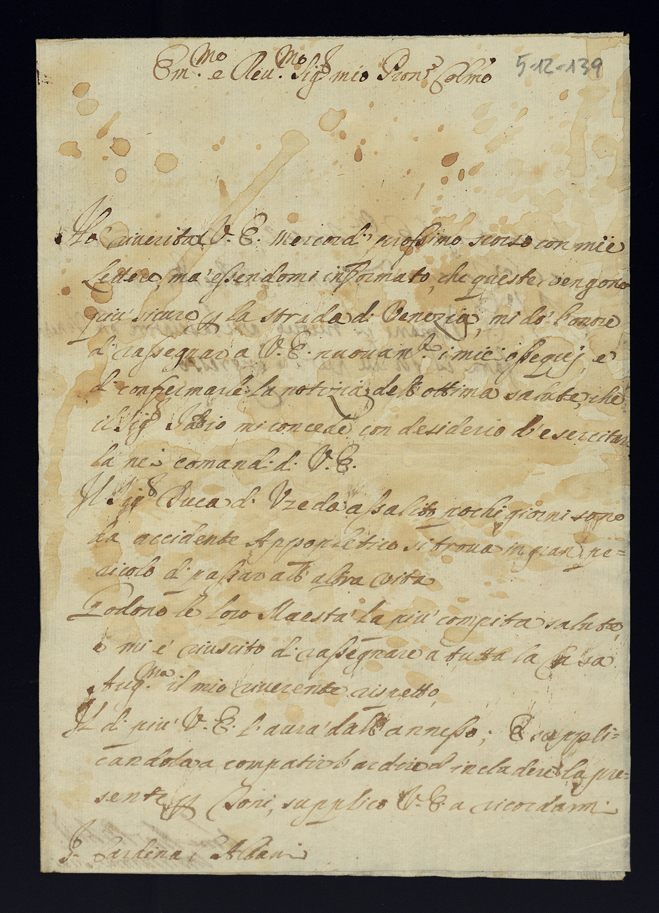 Em.mo e Reu.mo Sig.r mio Pron.e Colmo
5-12-139
Ho riuerita V. E. Mercord: prossimo scorso con mie
Lettere, ma essendomi informato, che queste vengono
piu sicure p la strada di Venezia, mi do l'onore
di rassegnar a V. E. nuouam.te i miei ossequj, e
di confirmarle la notizia dell'ottima salute, che
il Sig.r Iddio mi concede con desiderio di esercitar
la nei comandi di V. E.
Il Sig.r Duca di Uzeda assalito pochi giorni sono
da accidente Appopletico si troua in gran pe=
ricolo di passar all'altra vita
Godono le loro Maestà la piu compita salute,
e mi è riuscito di rassegnare a tutta la Casa
Aug.ma il mio riuerente rispetto,
Il di piu V. E. l'aurà dall'annesso; E suppli=
candola a compatir l'ardire d'includere la pre=
sente p supplico V. E. a ricordarmi
S. Cardinal Albani